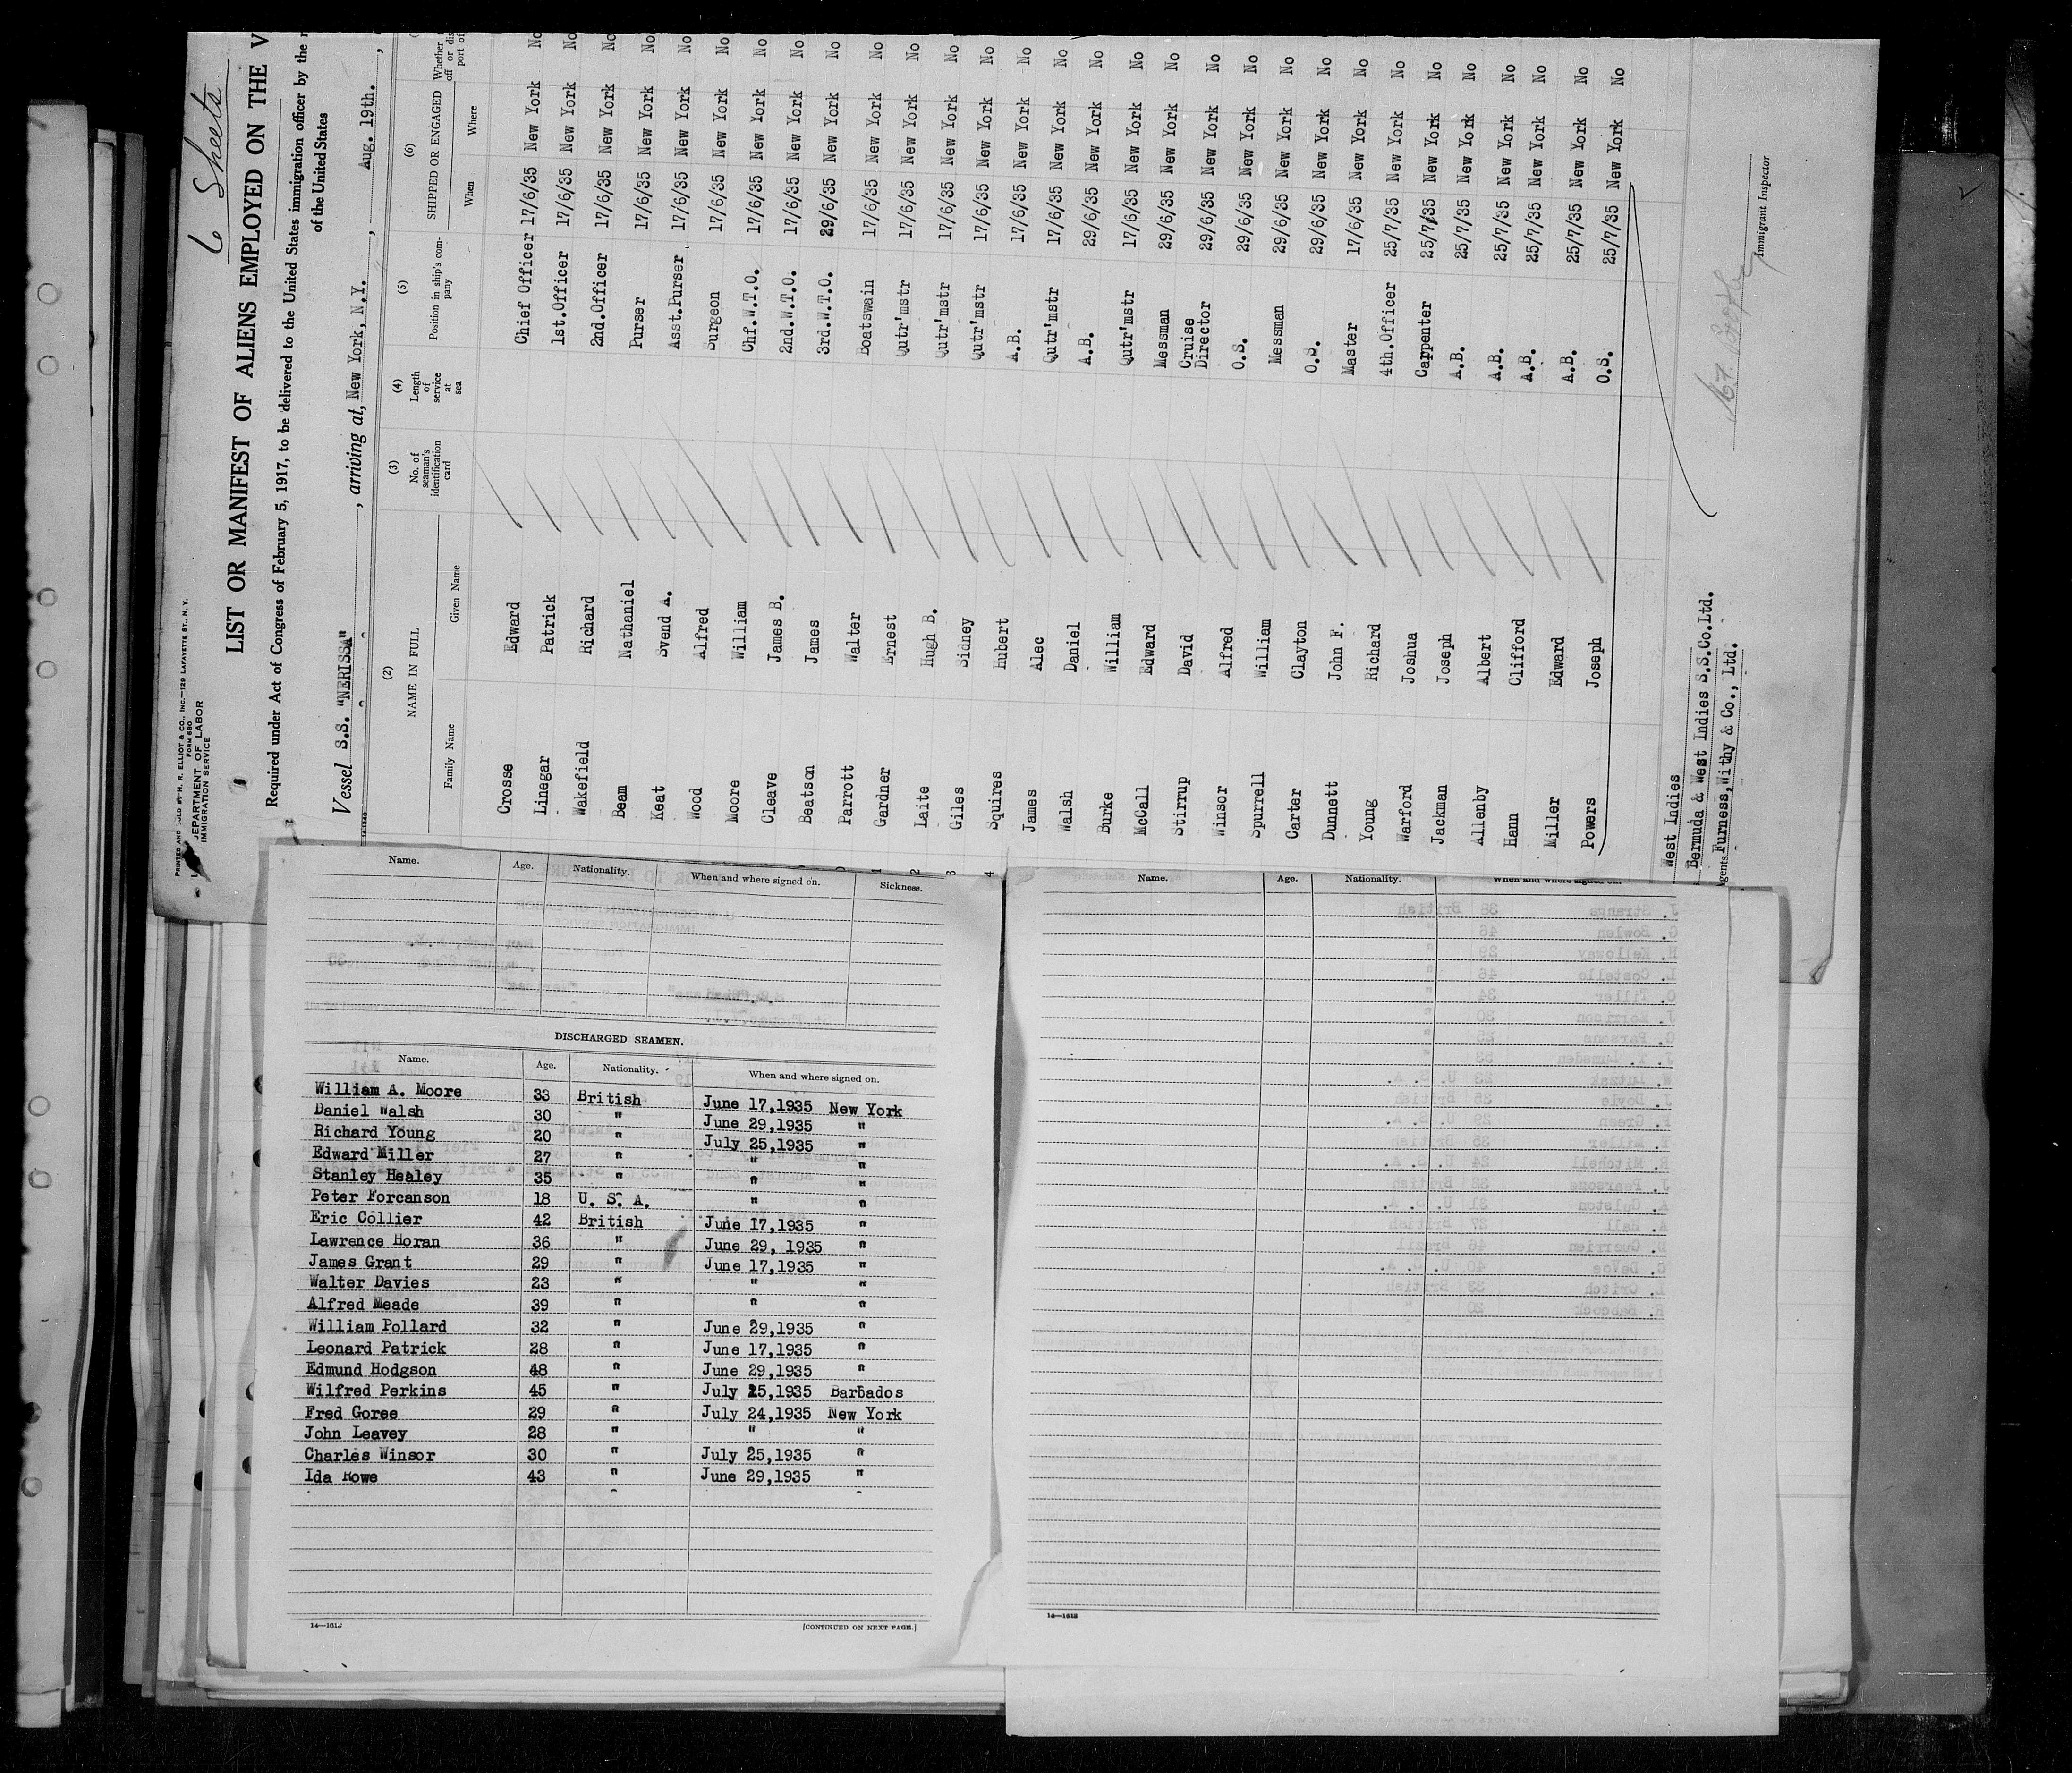 6 Sheets
PRINTED AND SOLD BY H. R. ELLIOT & CO., INC.—129 LAFAYETTE ST., N. Y.
FORM 680
DEPARTMENT OF LABOR
IMMIGRATION SERVICE
LIST OR MANIFEST OF ALIENS EMPLOYED ON THE V
Required under Act of Congress of February 5, 1917, to be delivered to the United States immigration officer by the
of the United States
Vessel S.S. "NERISSA" , arriving at, New York, N.Y. , Aug. 19th. ,
(2) (3) (4) (5) (6)
NAME IN FULL No. of seaman's identification card Length of service at sea Position in ship's company SHIPPED OR ENGAGED Whether
Family Name Given Name When Where
Crosse Edward Chief Officer 17/6/35 New York No
Linegar Patrick 1st.Officer 17/6/35 New York No
Wakefield Richard 2nd.Officer 17/6/35 New York No
Beam Nathaniel Purser 17/6/35 New York No
Keat Svend A. Asst.Purser 17/6/35 New York No
Wood Alfred Surgeon 17/6/35 New York No
Moore William Chf.W.T.O. 17/6/35 New York No
Cleave James B. 2nd.W.T.O. 17/6/35 New York No
Beatson James 3rd.W.T.O. 29/6/35 New York No
Parrott Walter Boatswain 17/6/35 New York No
Gardner Ernest Qutr'mstr 17/6/35 New York No
Laite Hugh B. Qutr'mstr 17/6/35 New York No
Giles Sidney Qutr'mstr 17/6/35 New York No
Squires Hubert A.B. 17/6/35 New York No
James Alec Qutr'mstr 17/6/35 New York No
Walsh Daniel A.B. 29/6/35 New York No
Burke William Qutr'mstr 17/6/35 New York No
McCall Edward Messman 29/6/35 New York No
Stirrup David Cruise Director 29/6/35 New York No
Winsor Alfred O.S. 29/6/35 New York No
Spurrell William Messman 29/6/35 New York No
Carter Clayton O.S. 29/6/35 New York No
Dunnett John F. Master 17/6/35 New York No
Young Richard 4th.Officer 25/7/35 New York No
Warford Joshua Carpenter 25/7/35 New York No
Jackman Joseph A.B. 25/7/35 New York No
Allenby Albert A.B. 25/7/35 New York No
Hann Clifford A.B. 25/7/35 New York No
Miller Edward A.B. 25/7/35 New York No
Powers Joseph O.S. 25/7/35 New York No
West Indies
Bermuda & West Indies S.S.Co.Ltd.
Agents Furness,Withy & Co., Ltd.
Immigrant Inspector
Name. Age. Nationality. When and where signed on. Sickness.
DISCHARGED SEAMEN.
Name. Age. Nationality. When and where signed on.
William A. Moore 33 British June 17,1935 New York
Daniel Walsh 30 " June 29,1935 "
Richard Young 20 " July 25,1935 "
Edward Miller 27 " " "
Stanley Healey 35 " " "
Peter Forcanson 18 U. S. A. " "
Eric Collier 42 British June 17,1935 "
Lawrence Horan 36 " June 29, 1935 "
James Grant 29 " June 17,1935 "
Walter Davies 23 " " "
Alfred Meade 39 " " "
William Pollard 32 " June 29,1935 "
Leonard Patrick 28 " June 17,1935 "
Edmund Hodgson 48 " June 29,1935 "
Wilfred Perkins 45 " July 15,1935 Barbados
Fred Goree 29 " July 24,1935 New York
John Leavey 28 " " "
Charles Winsor 30 " July 25,1935 "
Ida Rowe 43 " June 29,1935 "
[CONTINUED ON NEXT PAGE.]
Name. Age. Nationality. When and where signed on.
14—1618